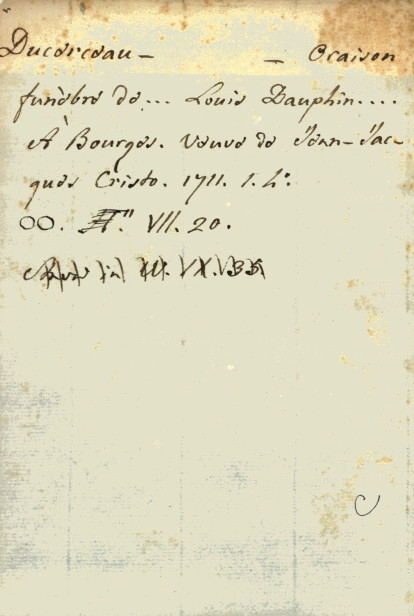 Ducerceau – – Oraison
funèbre de... Louis Dauphin....
A Bourges. veuve de Jean-Jac-
ques Cristo. 1711. 1. 4°.
OO. VII. 20.
in